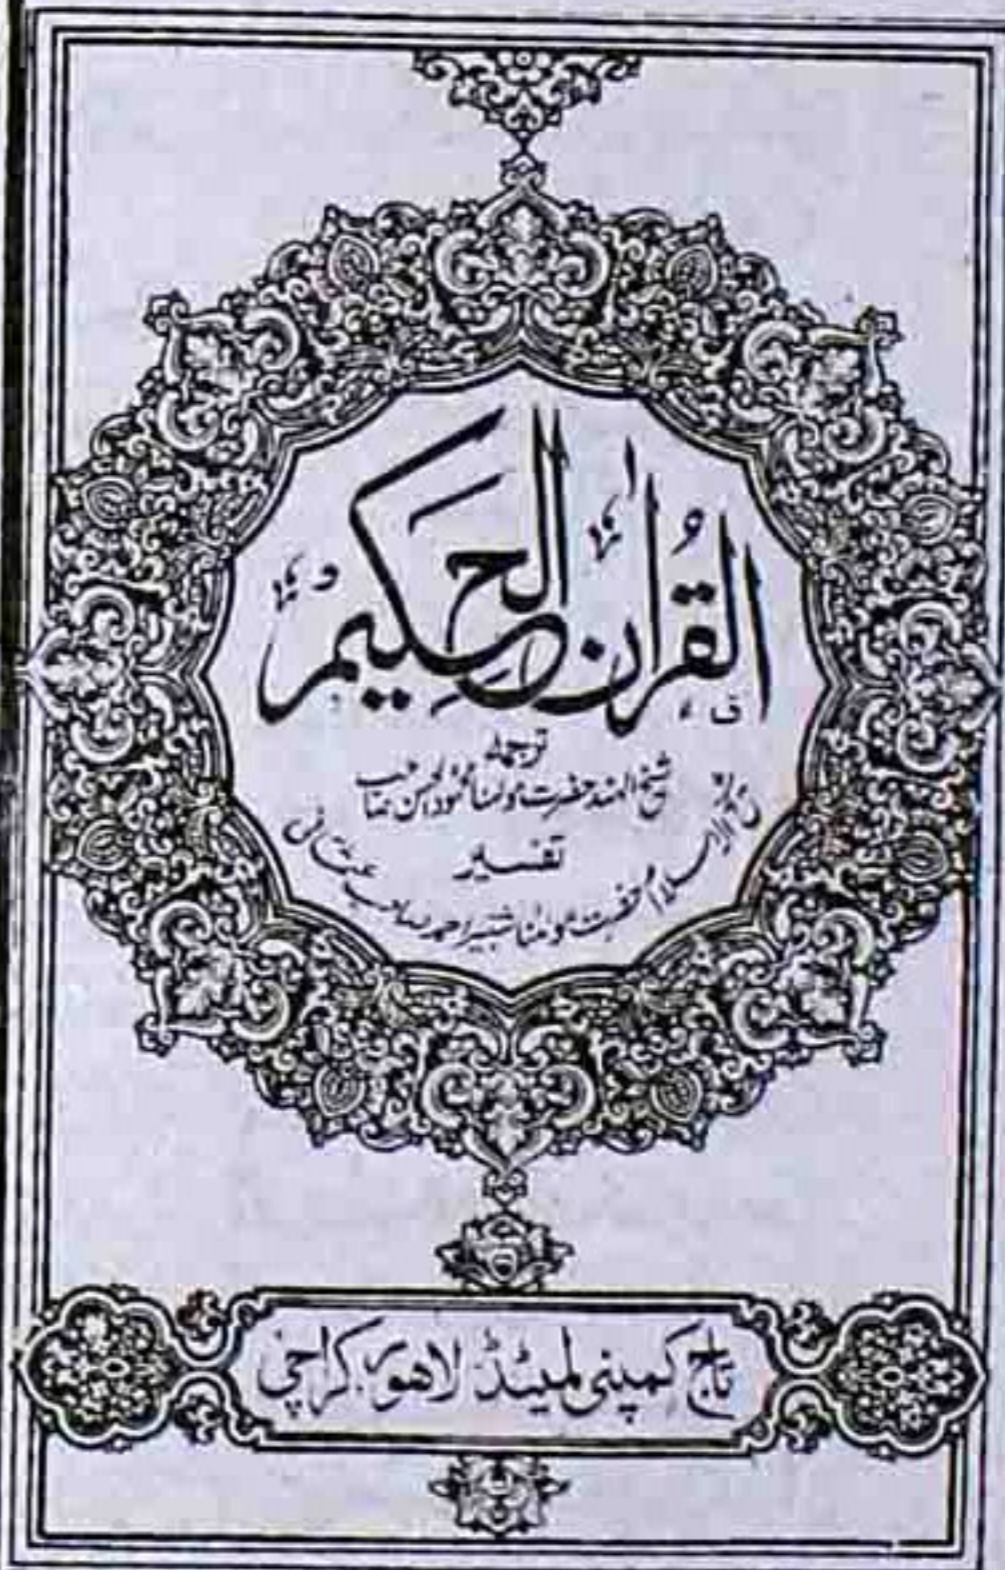 القرآن الحکیم
ترجمہ
شیخ الہند حضرت مولٰنا محمود الحسن صاحب
تفسیر
شیخ الاسلام حضرت مولٰنا شبیر احمد صاحب عثمانی
تاج کمپنی لمیٹڈ لاهور کراچی